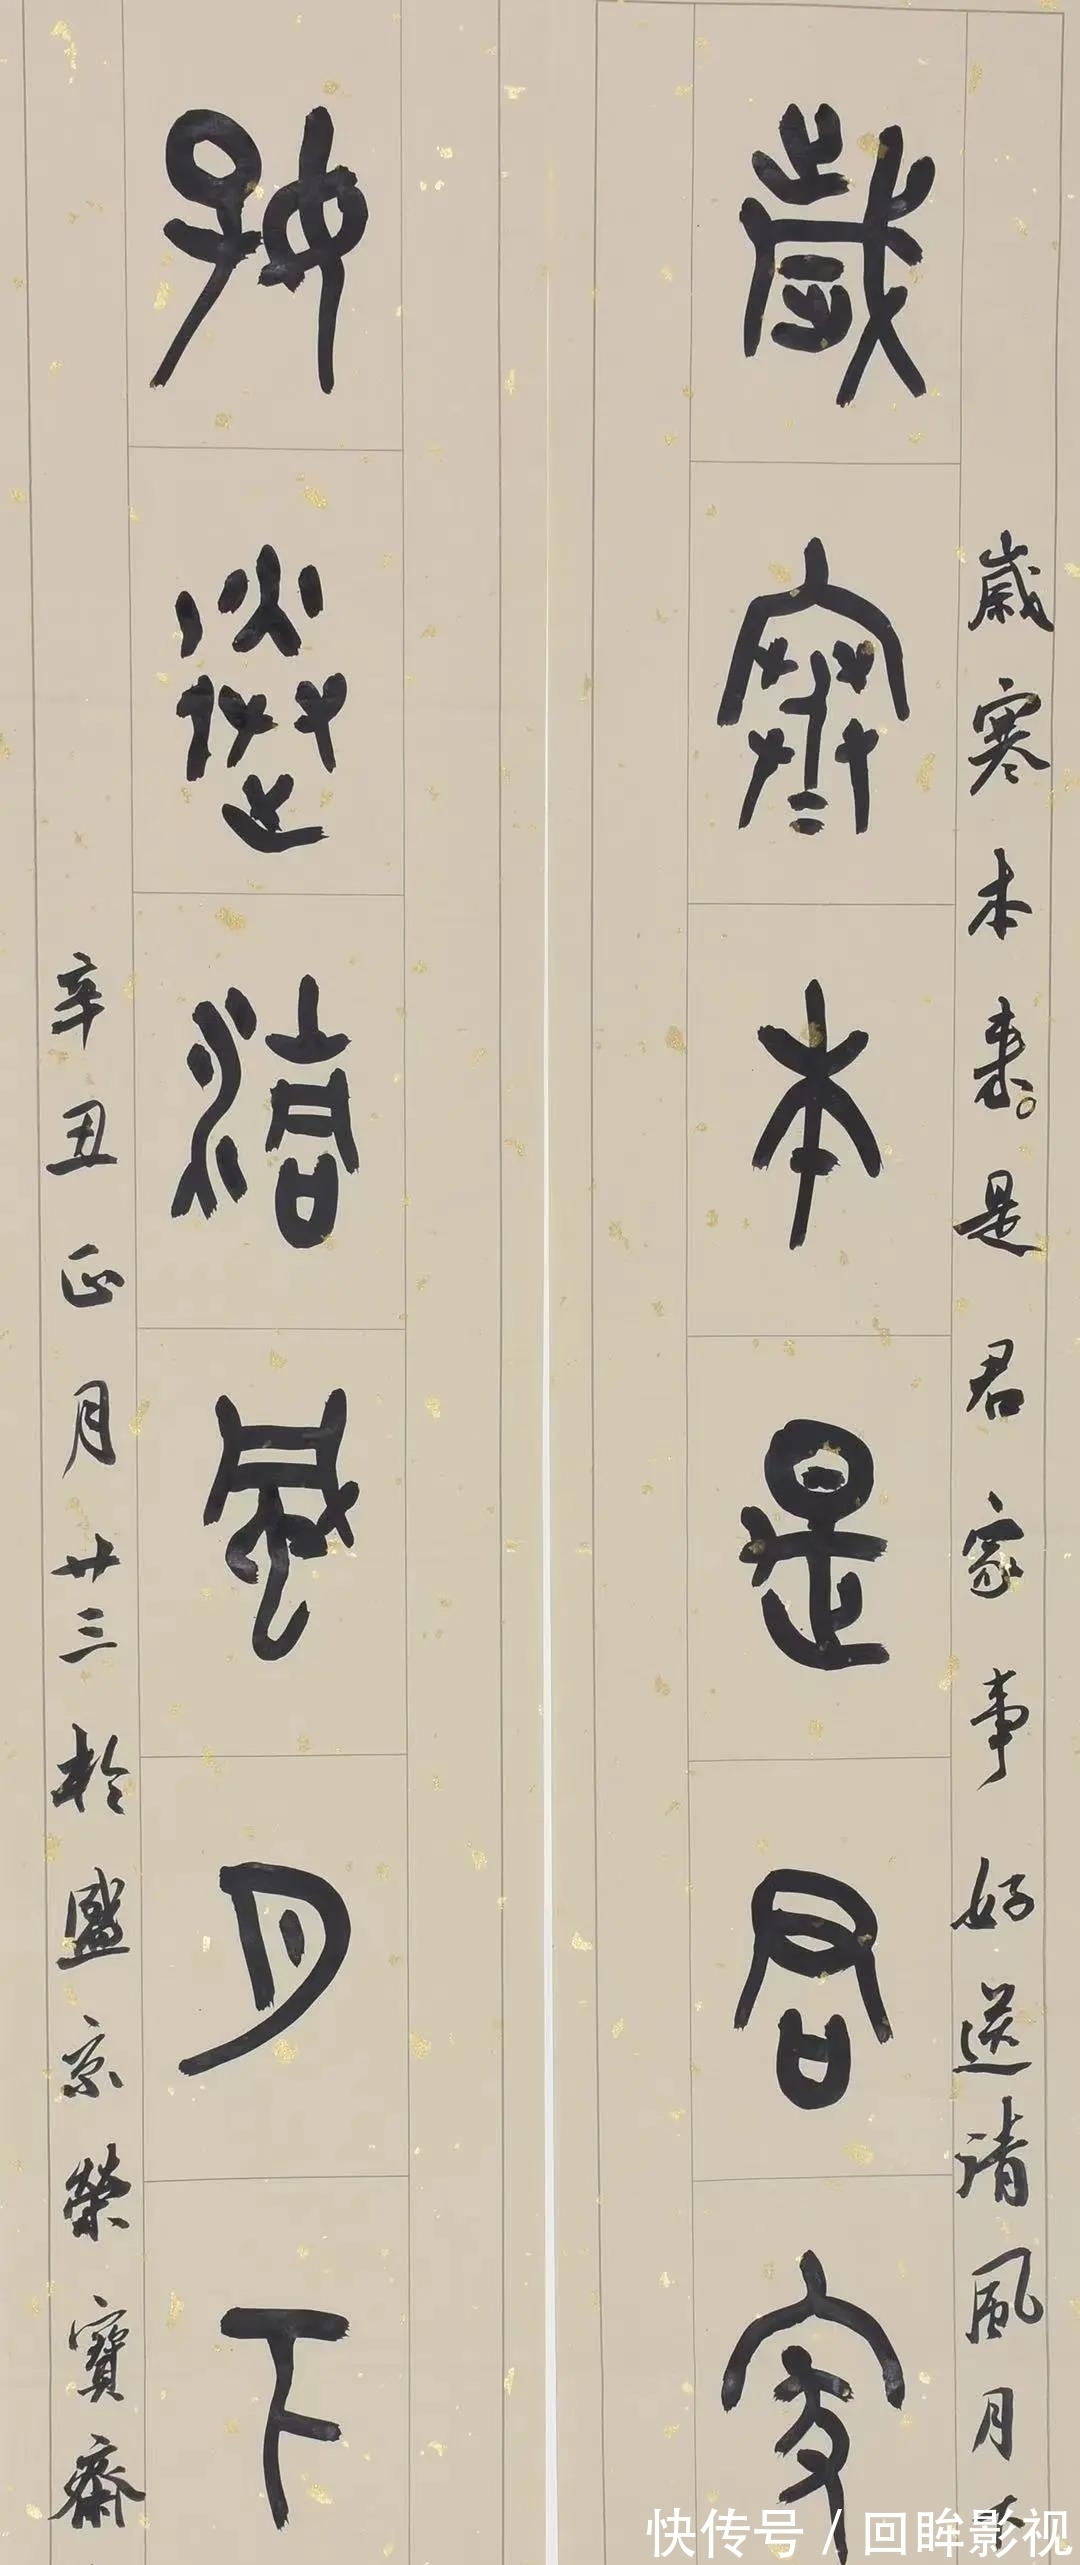 歲寒本來。是君家事好送清風月下
歲寒本是君家
好送清風月下
辛丑正月廿三於盛京榮寶齋
快传号 / 回眸影视